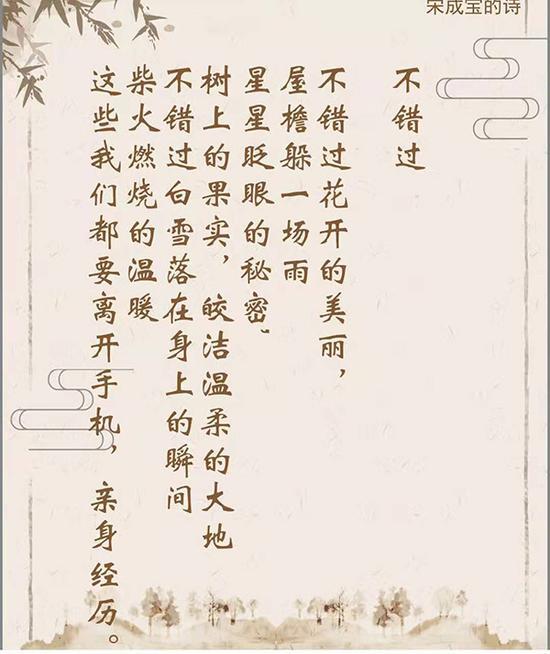 宋成宝的诗
不错过
不错过花开的美丽，
屋檐躲一场雨
星星眨眼的秘密。
树上的果实，皎洁温柔的大地
不错过白雪落在身上的瞬间
柴火燃烧的温暖
这些我们都要离开手机，亲身经历。